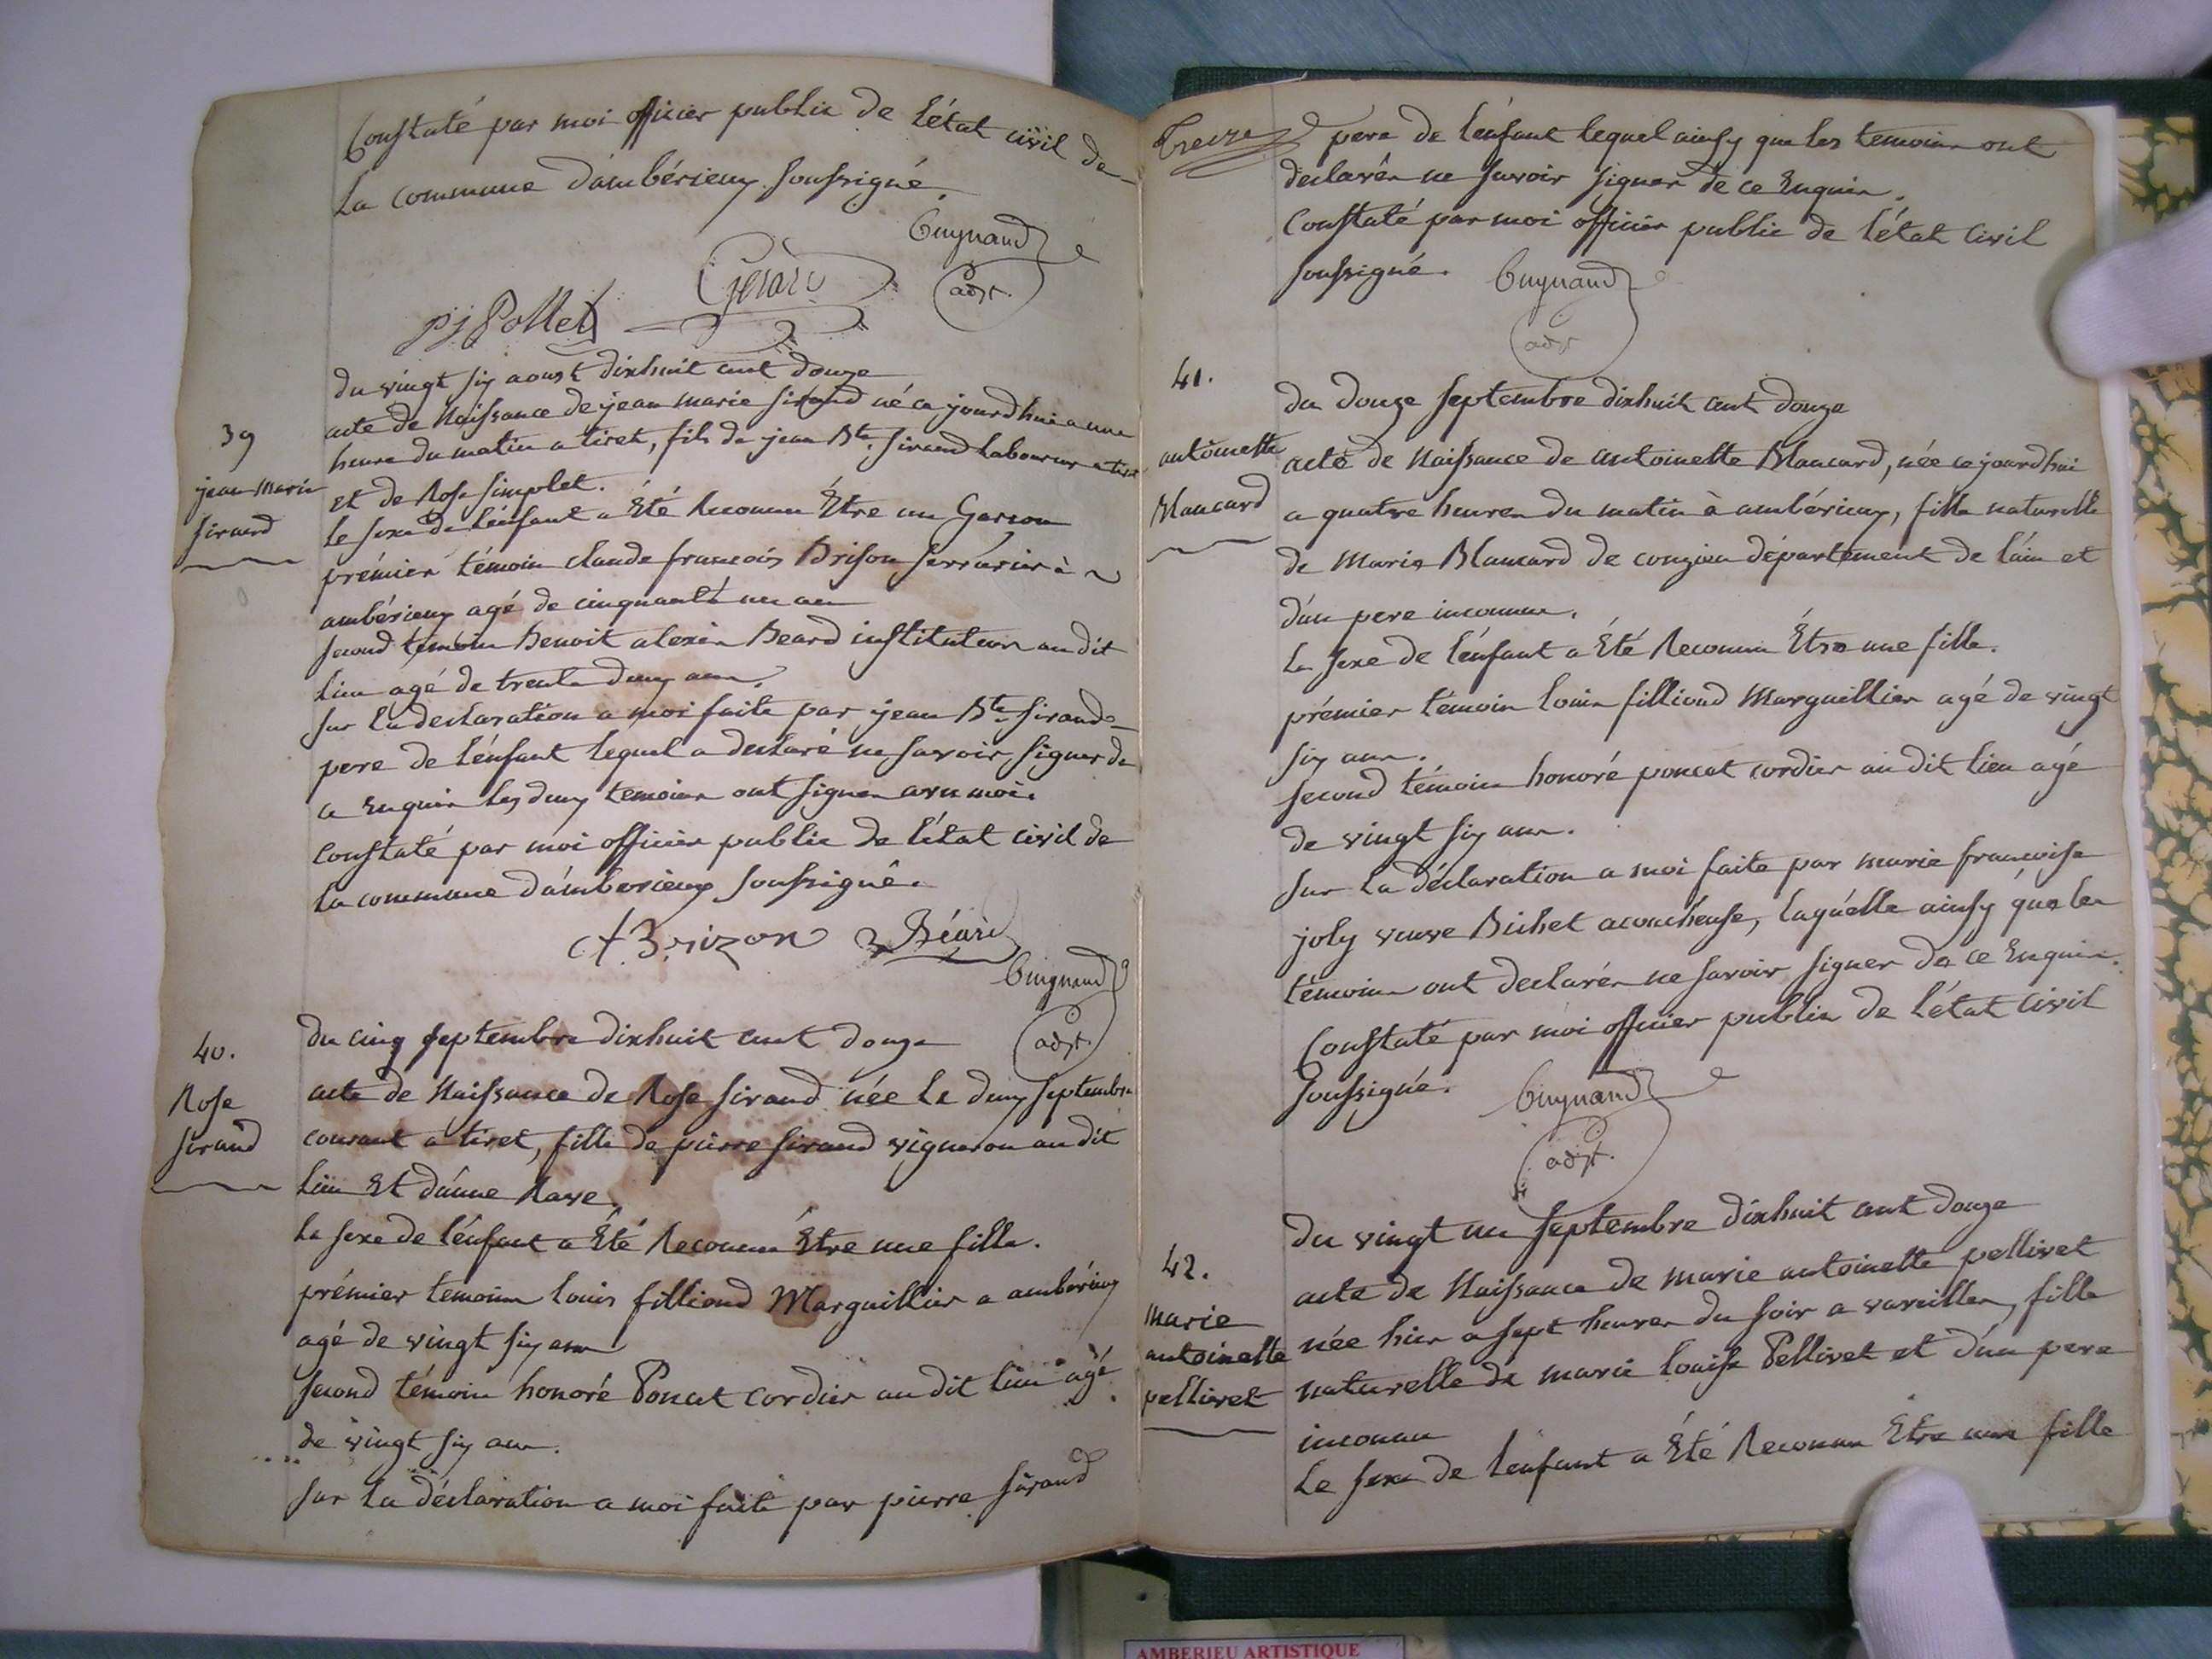 Constaté par moi officier public de l'état civil de
La commune d'ambérieux soussigné.
Guynand
adjt.
Gerard
pj Pollet
du vingt six aoust dixhuit cent douze
39
jean Marie
sirand
acte de Naissance de jean marie sirand né ce jourdhui a une
heure du matin a tiret, fils de jean Bte. sirand Laboureur a tiret
et de Rose simplet.
Le sexe de l'énfant a Été Reconnu Être un Garcon
prémier témoin claude francois Brison serrurier à
ambérieux agé de cinquante un ans
second témoin Benoit alexis Beard instituteur au dit
Lieu agé de trente deux ans.
sur La declaration a moi faite par jean Bte. sirand
pere de L'énfant Lequel a declaré ne savoir signer de
ce Enquis Les deux temoins ont signer avec moi.
Constaté par moi officier public de L'état civil de
La commune d'amberieux soussigné.
cf Brizon
Béard
Guignand
adjt.
40.
Rose
sirand
du cinq septembre dixhuit cent douze
acte de Naissance de Rose sirand née Le deux septembre
courant a tiret, fille de pierre sirand vigneron au dit
Lieu Et d'anne Rave.
Le sexe de l'énfant a Été Reconnu Être une fille.
prémier temoin Louis filliond Marguillier a ambérieux
agé de vingt six ans
second témoin honoré Poncet cordier au dit Lieu agé
de vingt six ans.
sur La déclaration a moi faite par pierre sirand
Treize
pere de l'énfant lequel ainsy que les temoins ont
declarér ne savoir signer de ce Enquis.
Constaté par moi officier public de l'état Civil
soussigné.
Guynand
adjt
41.
antoinette
Blancard
du douze septembre dixhuit cent douze
acte de Naissance de antoinette Blancard, née ce jourdhui
a quatre heures du matin à ambérieux, fille naturelle
de Marie Blancard de conzieu département de l'ain et
d'un pere inconnu.
Le sexe de l'énfant a Été Reconnu Être une fille.
prémier témoin Louis filliond Marguillier agé de vingt
six ans.
second témoin honoré poncet cordier au dit lieu agé
de vingt six ans.
sur La déclaration a moi faite par marie francoise
joly veuve Bichet acoucheuse, laquelle ainsy que les
témoins ont declarér ne savoir signer de ce Enquis.
Constaté par moi officier public de l'état civil
soussigné.
Guynand
adjt.
42.
marie
antoinette
pellivet
du vingt un septembre dixhuit cent douze
acte de Naissance de marie antoinette pellivet
née hier a sept heures du soir a vareilles, fille
naturelle de marie louise Pellivet et d'un pere
inconnu
Le sexe de l'enfant a Été Reconnu Etre une fille
AMBERIEU ARTISTIQUE